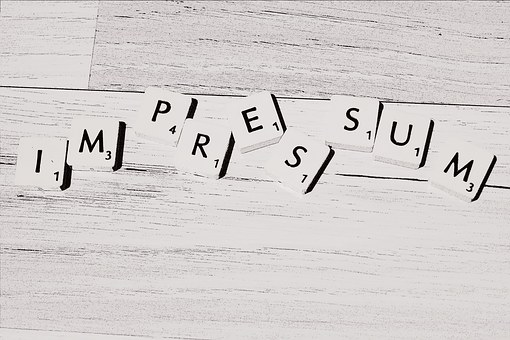 IMPRESSUM
I1 M3 P4 R1 E1 S1 S1 U1 M3